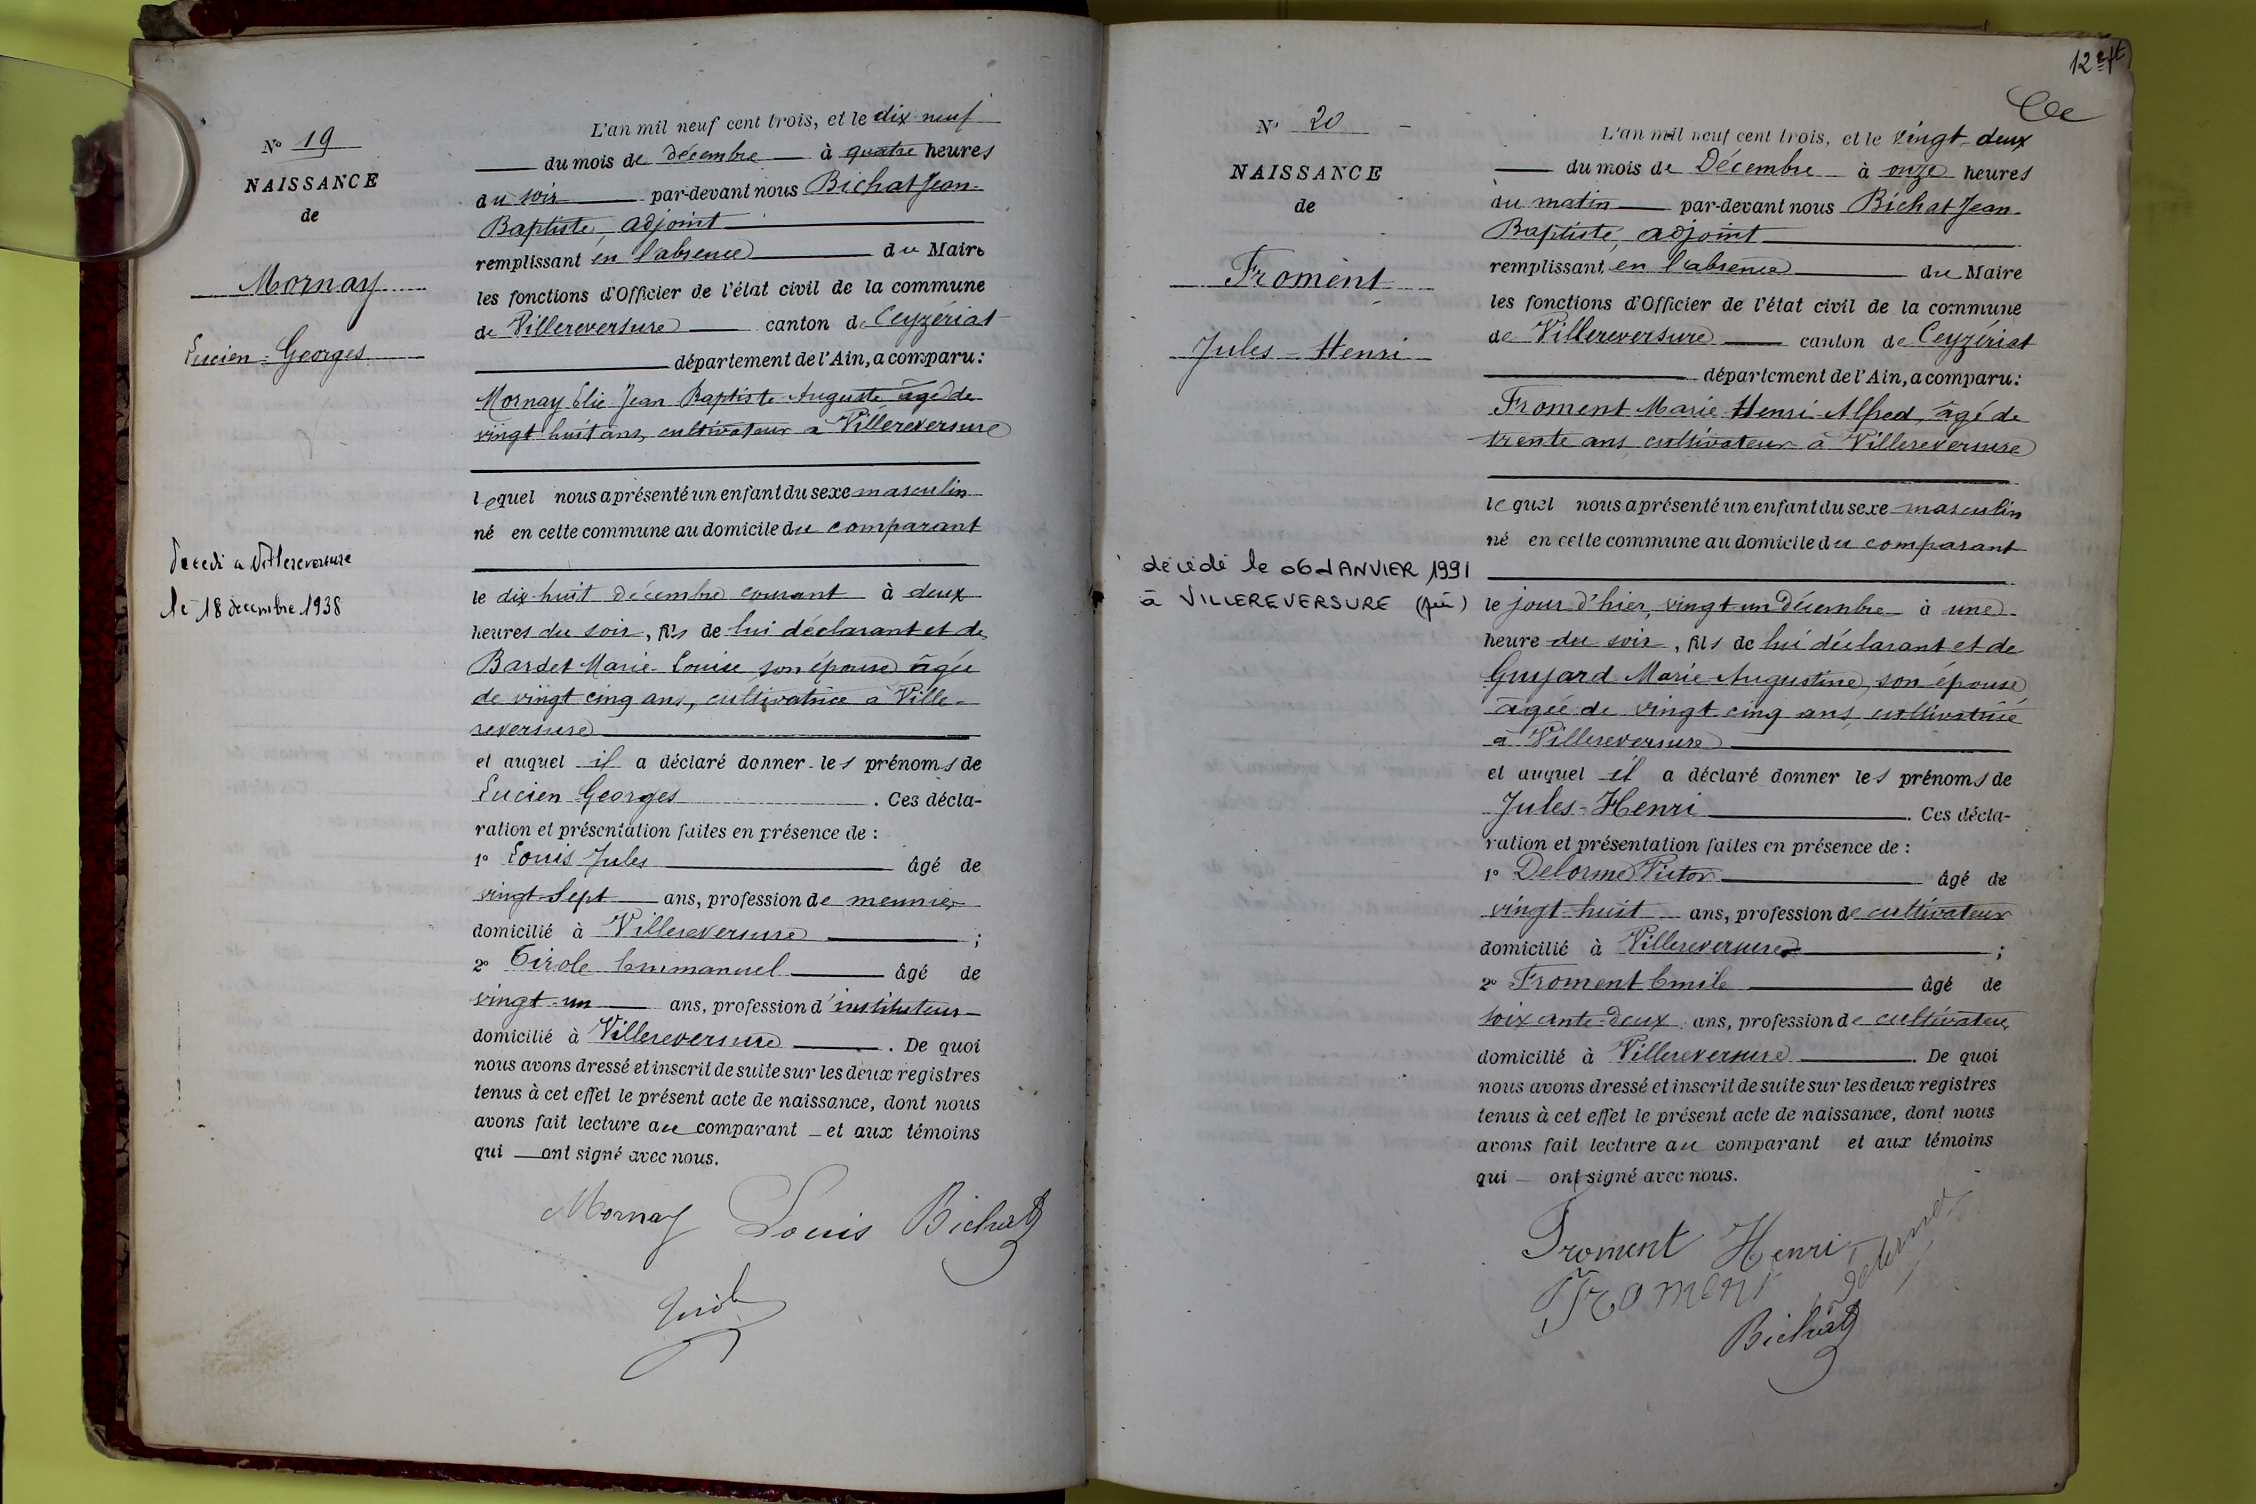 Nº 19
NAISSANCE
de
Mornay
Lucien-Georges
Décédé à Villereversure
le 18 décembre 1938
L'an mil neuf cent trois, et le dix-neuf
du mois de décembre à quatre heures
du soir par-devant nous Bichat Jean-
Baptiste, adjoint
remplissant en l'absence du Maire
les fonctions d'Officier de l'état civil de la commune
de Villereversure canton de Ceyzériat
département de l'Ain, a comparu:
Mornay Elie Jean Baptiste Auguste âgé de
vingt huit ans, cultivateur à Villereversure
lequel nous a présenté un enfant du sexe masculin
né en cette commune au domicile du comparant
le dix-huit décembre courant à deux
heures du soir, fils de lui déclarant et de
Bardet Marie-Louise son épouse âgée
de vingt cinq ans, cultivatrice à Ville-
reversure
et auquel il a déclaré donner les prénoms de
Lucien Georges. Ces décla-
ration et présentation faites en présence de :
1º Louis Jules âgé de
vingt-sept ans, profession de meunier
domicilié à Villereversure ;
2º Tirole Emmanuel âgé de
vingt-un ans, profession d'instituteur
domicilié à Villereversure. De quoi
nous avons dressé et inscrit de suite sur les deux registres
tenus à cet effet le présent acte de naissance, dont nous
avons fait lecture au comparant et aux témoins
qui ont signé avec nous.
Mornay Louis Bichat
Tirole
Nº 20
NAISSANCE
de
Froment
Jules-Henri
décédé le 06 JANVIER 1991
à VILLEREVERSURE
L'an mil neuf cent trois, et le vingt-deux
du mois de Décembre à onze heures
du matin par-devant nous Bichat Jean-
Baptiste, adjoint
remplissant en l'absence du Maire
les fonctions d'Officier de l'état civil de la commune
de Villereversure canton de Ceyzériat
département de l'Ain, a comparu:
Froment Marie-Henri-Alfred, âgé de
trente ans cultivateur à Villereversure
lequel nous a présenté un enfant du sexe masculin
né en cette commune au domicile du comparant
le jour d'hier, vingt un Décembre à une
heure du soir, fils de lui déclarant et de
Guyard Marie-Augustine, son épouse
âgée de vingt-cinq ans, cultivatrice
à Villereversure
et auquel il a déclaré donner les prénoms de
Jules-Henri. Ces décla-
ration et présentation faites en présence de :
1º Delorme Victor âgé de
vingt-huit ans, profession de cultivateur
domicilié à Villereversure ;
2º Froment Emile âgé de
soixante-deux ans, profession de cultivateur
domicilié à Villereversure. De quoi
nous avons dressé et inscrit de suite sur les deux registres
tenus à cet effet le présent acte de naissance, dont nous
avons fait lecture au comparant et aux témoins
qui ont signé avec nous.
Froment Henri
Froment Delorme
Bichat